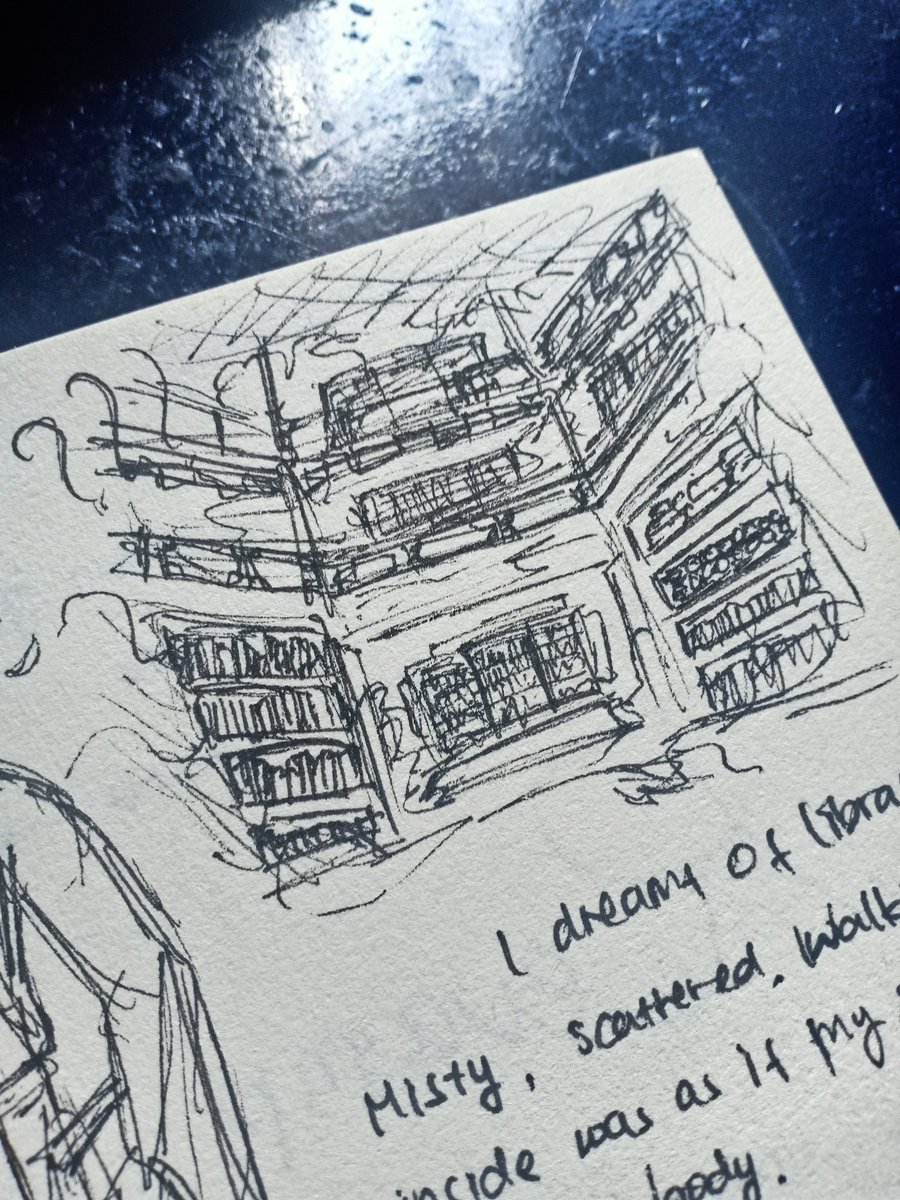 I dreamt of libra
Misty, scattered. Walk
inside was as if my
body.